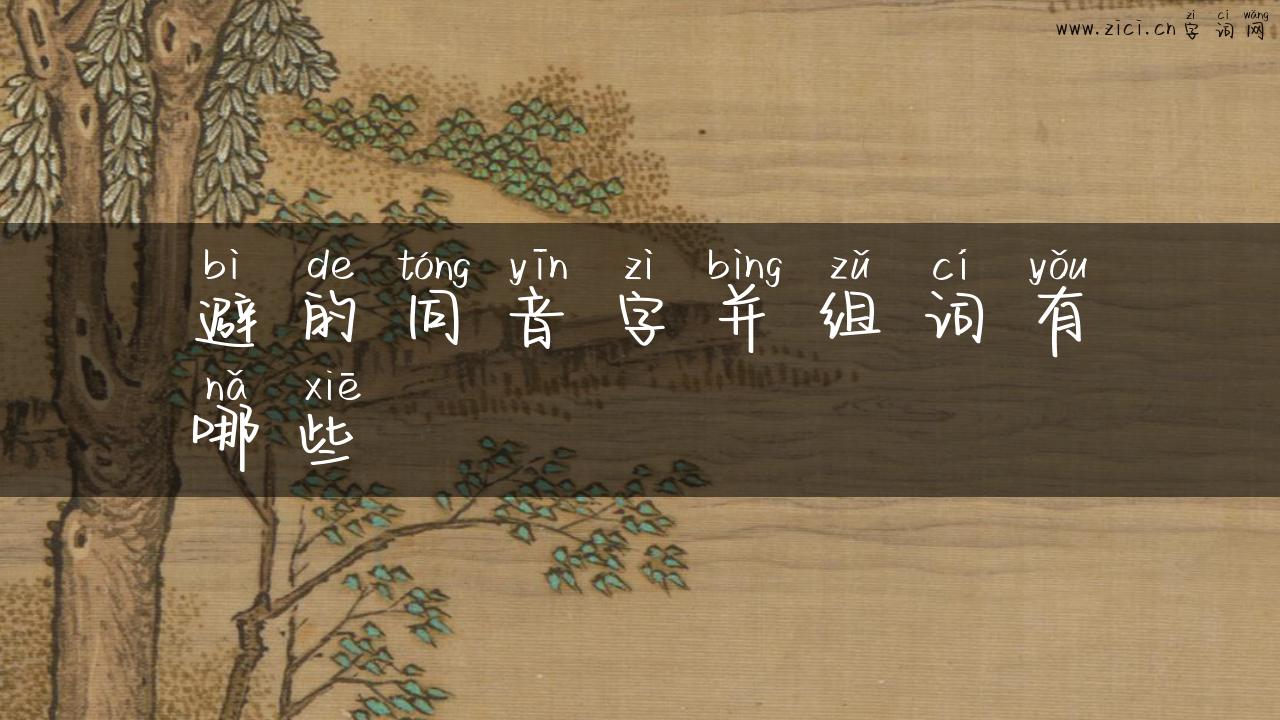 zì cí wǎng
www.zici.cn 字词网
bì de tóng yīn zì bìng zǔ cí yǒu
避的同音字并组词有
nǎ xiē
哪些